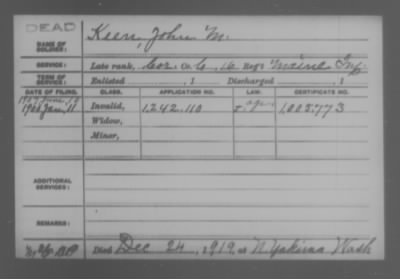 DEAD
NAME OF SOLDIER: Keen, John M.
SERVICE: Late rank, Cor. Co. C, 16 Reg't Maine Inf.
TERM OF SERVICE: Enlisted , 1 Discharged , 1
DATE OF FILING. CLASS. APPLICATION NO. LAW. CERTIFICATE NO.
1907 June 10
Jan. 11 Invalid, 1,242,110 1,005,773
Widow,
Minor,
ADDITIONAL SERVICES:
REMARKS:
1919 Died Dec 24, 1919, at N. Yakima Wash